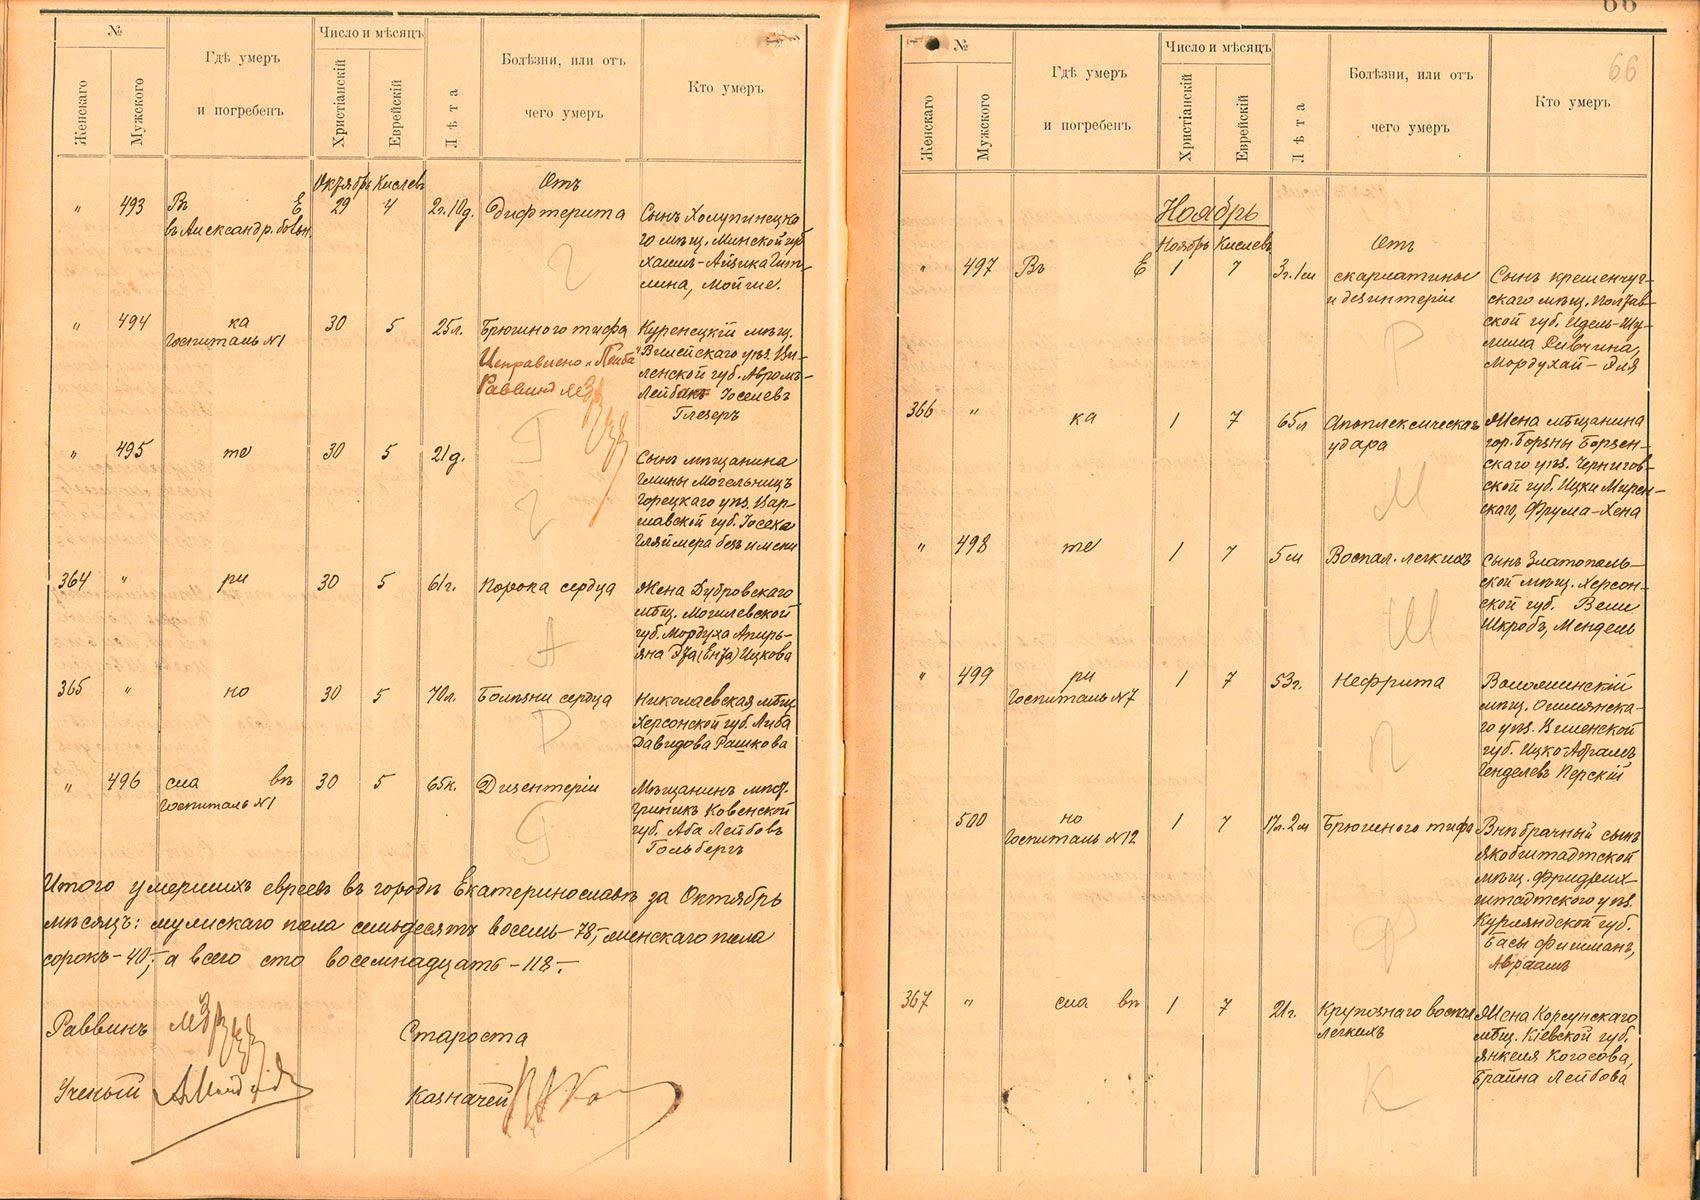 №
Женскаго
Мужского
Гдѣ умеръ
и погребенъ
Число и мѣсяцъ
Христіанскій
Еврейскій
Лѣта
Болѣзни, или отъ
чего умеръ
Кто умеръ
Октябрь Кислевъ
Отъ
" 493 Въ Е 29 4 2г.10д. Дифтерита
въ Александр. больн.
Сынъ Холупинецка
го мѣщ. Минской губ
Хаимъ-Айзика Гит-
лина, Мойше.
" 494 ка 30 5 25л. Брюшного тифа
Госпиталь №1
Исправлено "Лейба"
Раввинъ
Куренецкій мѣщ.
Вилейскаго уѣз. Ви-
ленской губ. Авромъ-
Лейба Іоселевъ
Глезеръ
" 495 те 30 5 21д.
Сынъ мѣщанина
Гмины Могельницъ
Горецкаго уѣз. Вар-
шавской губ. Іосека
Гляймера безъ имени
364 " ри 30 5 61г. Порока сердца
Жена Дубровскаго
мѣщ. Могилевской
губ. Мордуха Апирь-
яна Ицкова
365 " но 30 5 70л. Болѣзни сердца
Николаевская мѣщ.
Херсонской губ. Либа
Давидова Рашкова
" 496 сла въ 30 5 65л. Дизентеріи
Госпиталь №1
Мѣщанинъ мѣст.
Гриникъ Ковенской
губ. Аба Лейбовъ
Гольбергъ
Итого умершихъ евреевъ въ городѣ Екатеринославѣ за Октябрь
мѣсяцъ: мужскаго пола семьдесятъ восемь-78, женскаго пола
сорокъ-40, а всего сто восемнадцать-118.
Раввинъ
Староста
Ученый
Казначей
66
66
№
Женскаго
Мужского
Гдѣ умеръ
и погребенъ
Число и мѣсяцъ
Христіанскій
Еврейскій
Лѣта
Болѣзни, или отъ
чего умеръ
Кто умеръ
Ноябрь
Ноябрь Кислевъ
Отъ
" 497 Въ Е 1 7 3г.1м скарлатины
и дезинтеріи
Сынъ кременчуг-
скаго мѣщ. Полтав-
ской губ. Идель-Шу-
лима Сивчина,
Мордухай-Эля
366 " ка 1 7 65л Апоплексическаго
удара
Жена мѣщанина
гор. Борзны Борзен-
скаго уѣз. Чернигов-
ской губ. Ицки Мирен-
скаго, Фрума-Хена
" 498 те 1 7 5м Воспал. легкихъ
Сынъ Златополь-
ской мѣщ. Херсон-
ской губ. Вели
Шкробъ, Мендель
" 499 ри 1 7 53г. Нефрита
Госпиталь №7
Воложинскій
мѣщ. Ошмянска-
го уѣз. Виленской
губ. Ицко-Абрамъ
Генделевъ Перскій
500 но 1 7 17л.2м Брюшного тифа
Госпиталь №12
Внѣбрачный сынъ
Якобштадтской
мѣщ. Фридрих-
штадтского уѣз.
Курляндской губ.
Басы Фишманъ,
Авраамъ
367 " сла въ 1 7 21г. Крупознаго воспал
легкихъ
Жена Корсунскаго
мѣщ. Кіевской губ.
Янкеля Когосова,
Брайна Лейбова